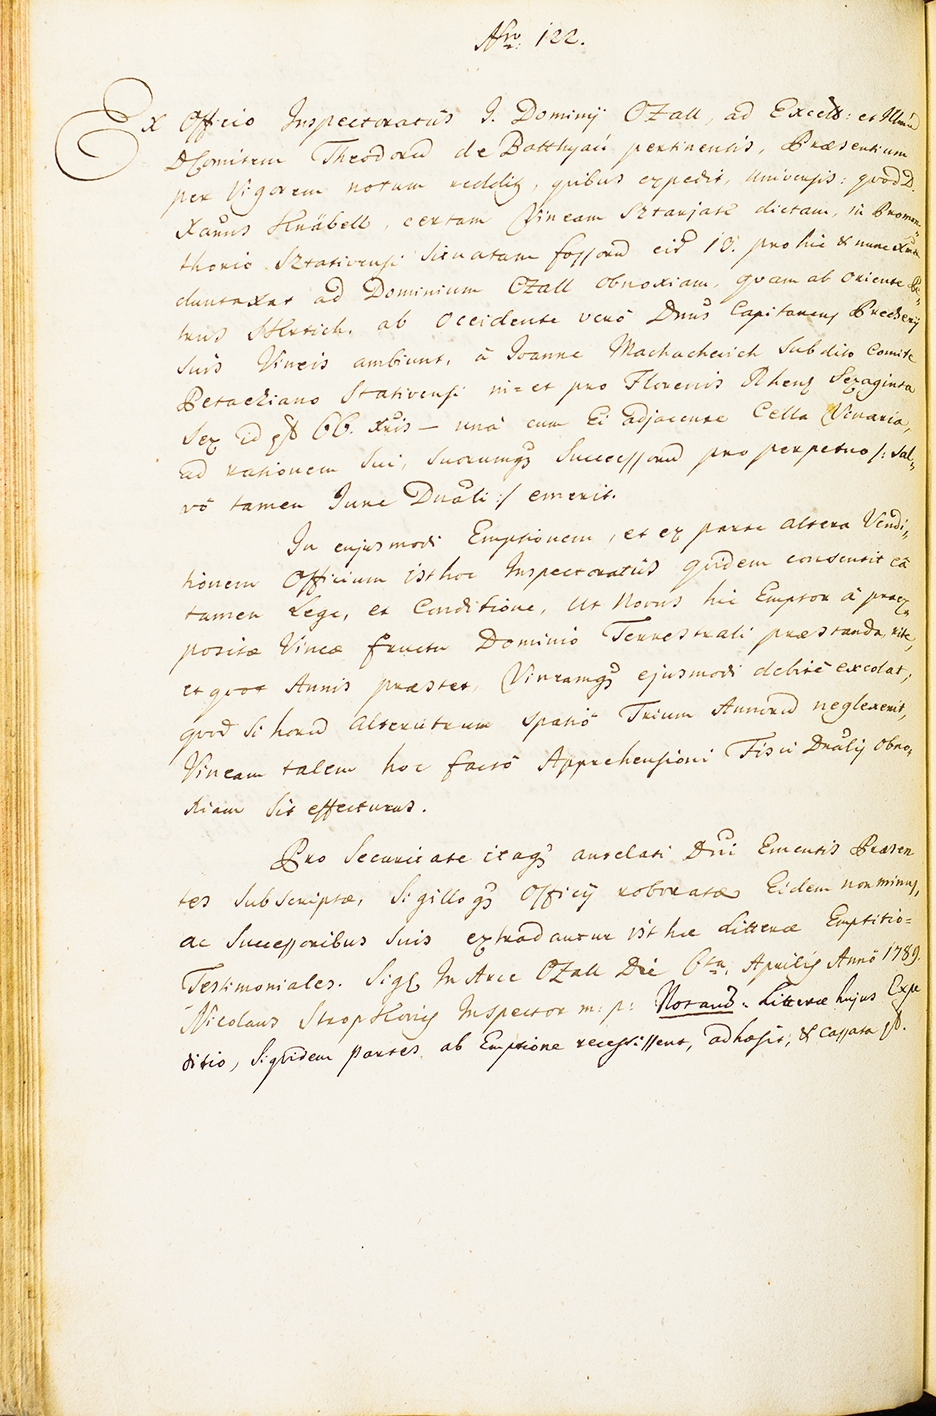 Nro 122.
Ex Officio Inspectoratûs I. Dominij OZall, ad Excell: et Illmũ
D Comitem Theodorũ de Batthyáń pertinentis, Præsentium
per Vigorem notum redditꝫ, quibus expedit, Universis: quod D.
Xaũus Knäbell, certam Vineam Sztarjask dictam, in Promon=
thorio Sztativensi situatam fossorũ cir̃ 10. pro hic & nunc
duntaxat ad Dominium OZall obnoxiam, quam ab oriente Pe=
trus Hertich, ab occidente verò Dnũs Capitaneꝫ Preckerꝫ
suis Vineis ambiunt, à Joanne Machachevich subdito Comite
Petacziano Stativensi in= et pro Florenis Rhenꝫ Sexaginta
Sex id est 66. Xris — unà cum Ei adjacente Cella Vinaria,
ad rationem sui, suorumqꝫ Successorũ pro perpetuo /: Sal=
vô tamen Jure Dnãli :/ emerit.
In cujusmodi Emptionem, et ex parte altera Vendi=
tionem Officium isthoc Inspectoratûs quidem consensit eâ
tamen Lege, et Conditione, Ut Novus hic Emptor à præ=
positæ Vineæ fructu Dominio Terrestrali præstanda, rite,
et quot Annis præstet, Vineamqꝫ ejusmodi debitè excolat,
quod si horũ alterutrum spatiô Trium Annorũ neglexerit,
Vineam talem hoc factô Apprehensioni Fisci Dnãlis obno=
xiam sit effecturus.
Pro Securitate itaqꝫ antelati Dnĩ Ementis Præsen
tes subscriptæ, Sigilloqꝫ Officij roboratæ Eidem non minus,
ac Successoribus suis extradantur isthæ Litteræ Emptitio=
Testimoniales. Sigl. In Arce OZall Die 6ta Aprilis Annô 1789.
Nicolaus Strop Kovis Inspector m: p: Notand. Litteræ hujus Expe
ditio, siquidem partes ab Emptione recessissent, adhæsit, & cassata est.